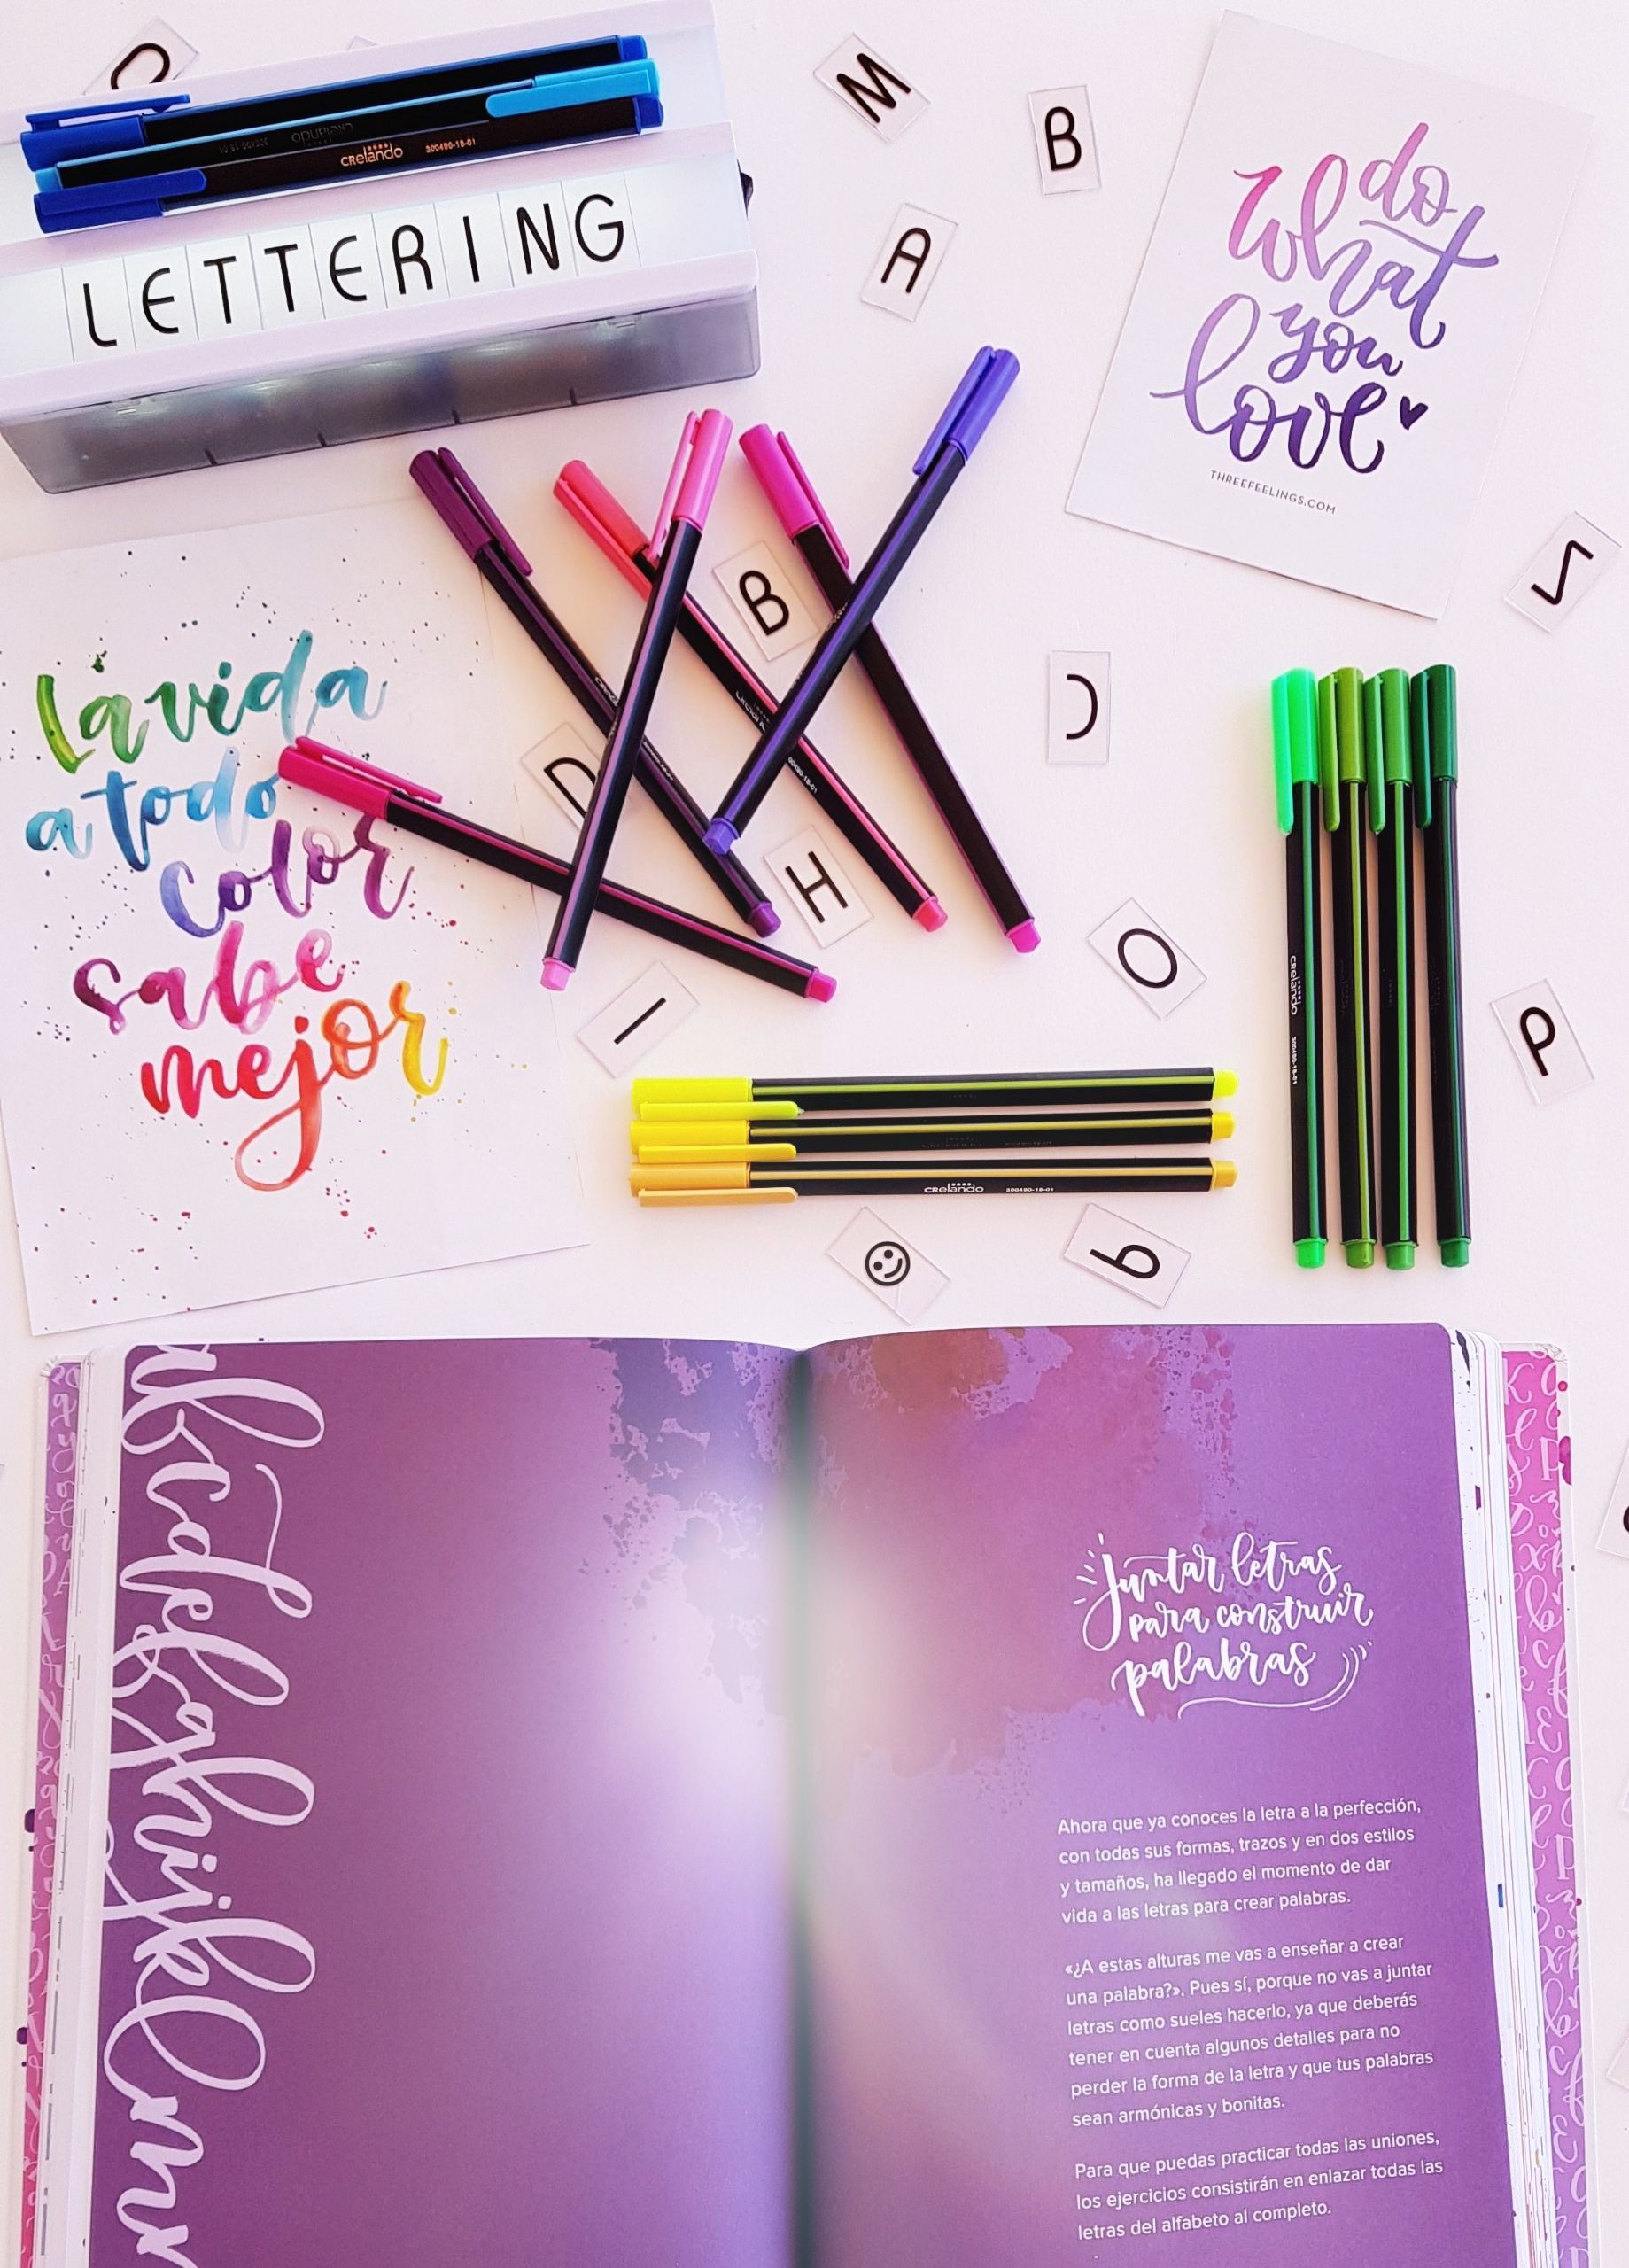 CRelando
CRelando 300490-18-01
LETTERING
M
B
A
do
what
you
love
THREEFEELINGS.COM
B
D
H
I
O
P
La vida
a todo
color
sabe
mejor
CRelando 300490-18-01
CRelando 300490-18-01
abcdefghijklmn
Juntar letras
para construir
palabras
Ahora que ya conoces la letra a la perfección,
con todas sus formas, trazos y en dos estilos
y tamaños, ha llegado el momento de dar
vida a las letras para crear palabras.
«¿A estas alturas me vas a enseñar a crear
una palabra?». Pues sí, porque no vas a juntar
letras como sueles hacerlo, ya que deberás
tener en cuenta algunos detalles para no
perder la forma de la letra y que tus palabras
sean armónicas y bonitas.
Para que puedas practicar todas las uniones,
los ejercicios consistirán en enlazar todas las
letras del alfabeto al completo.